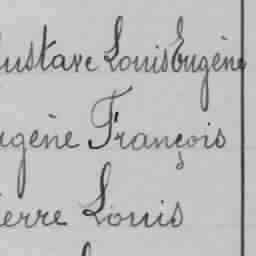 ustave Louis Eugène
gène François
ierre Louis